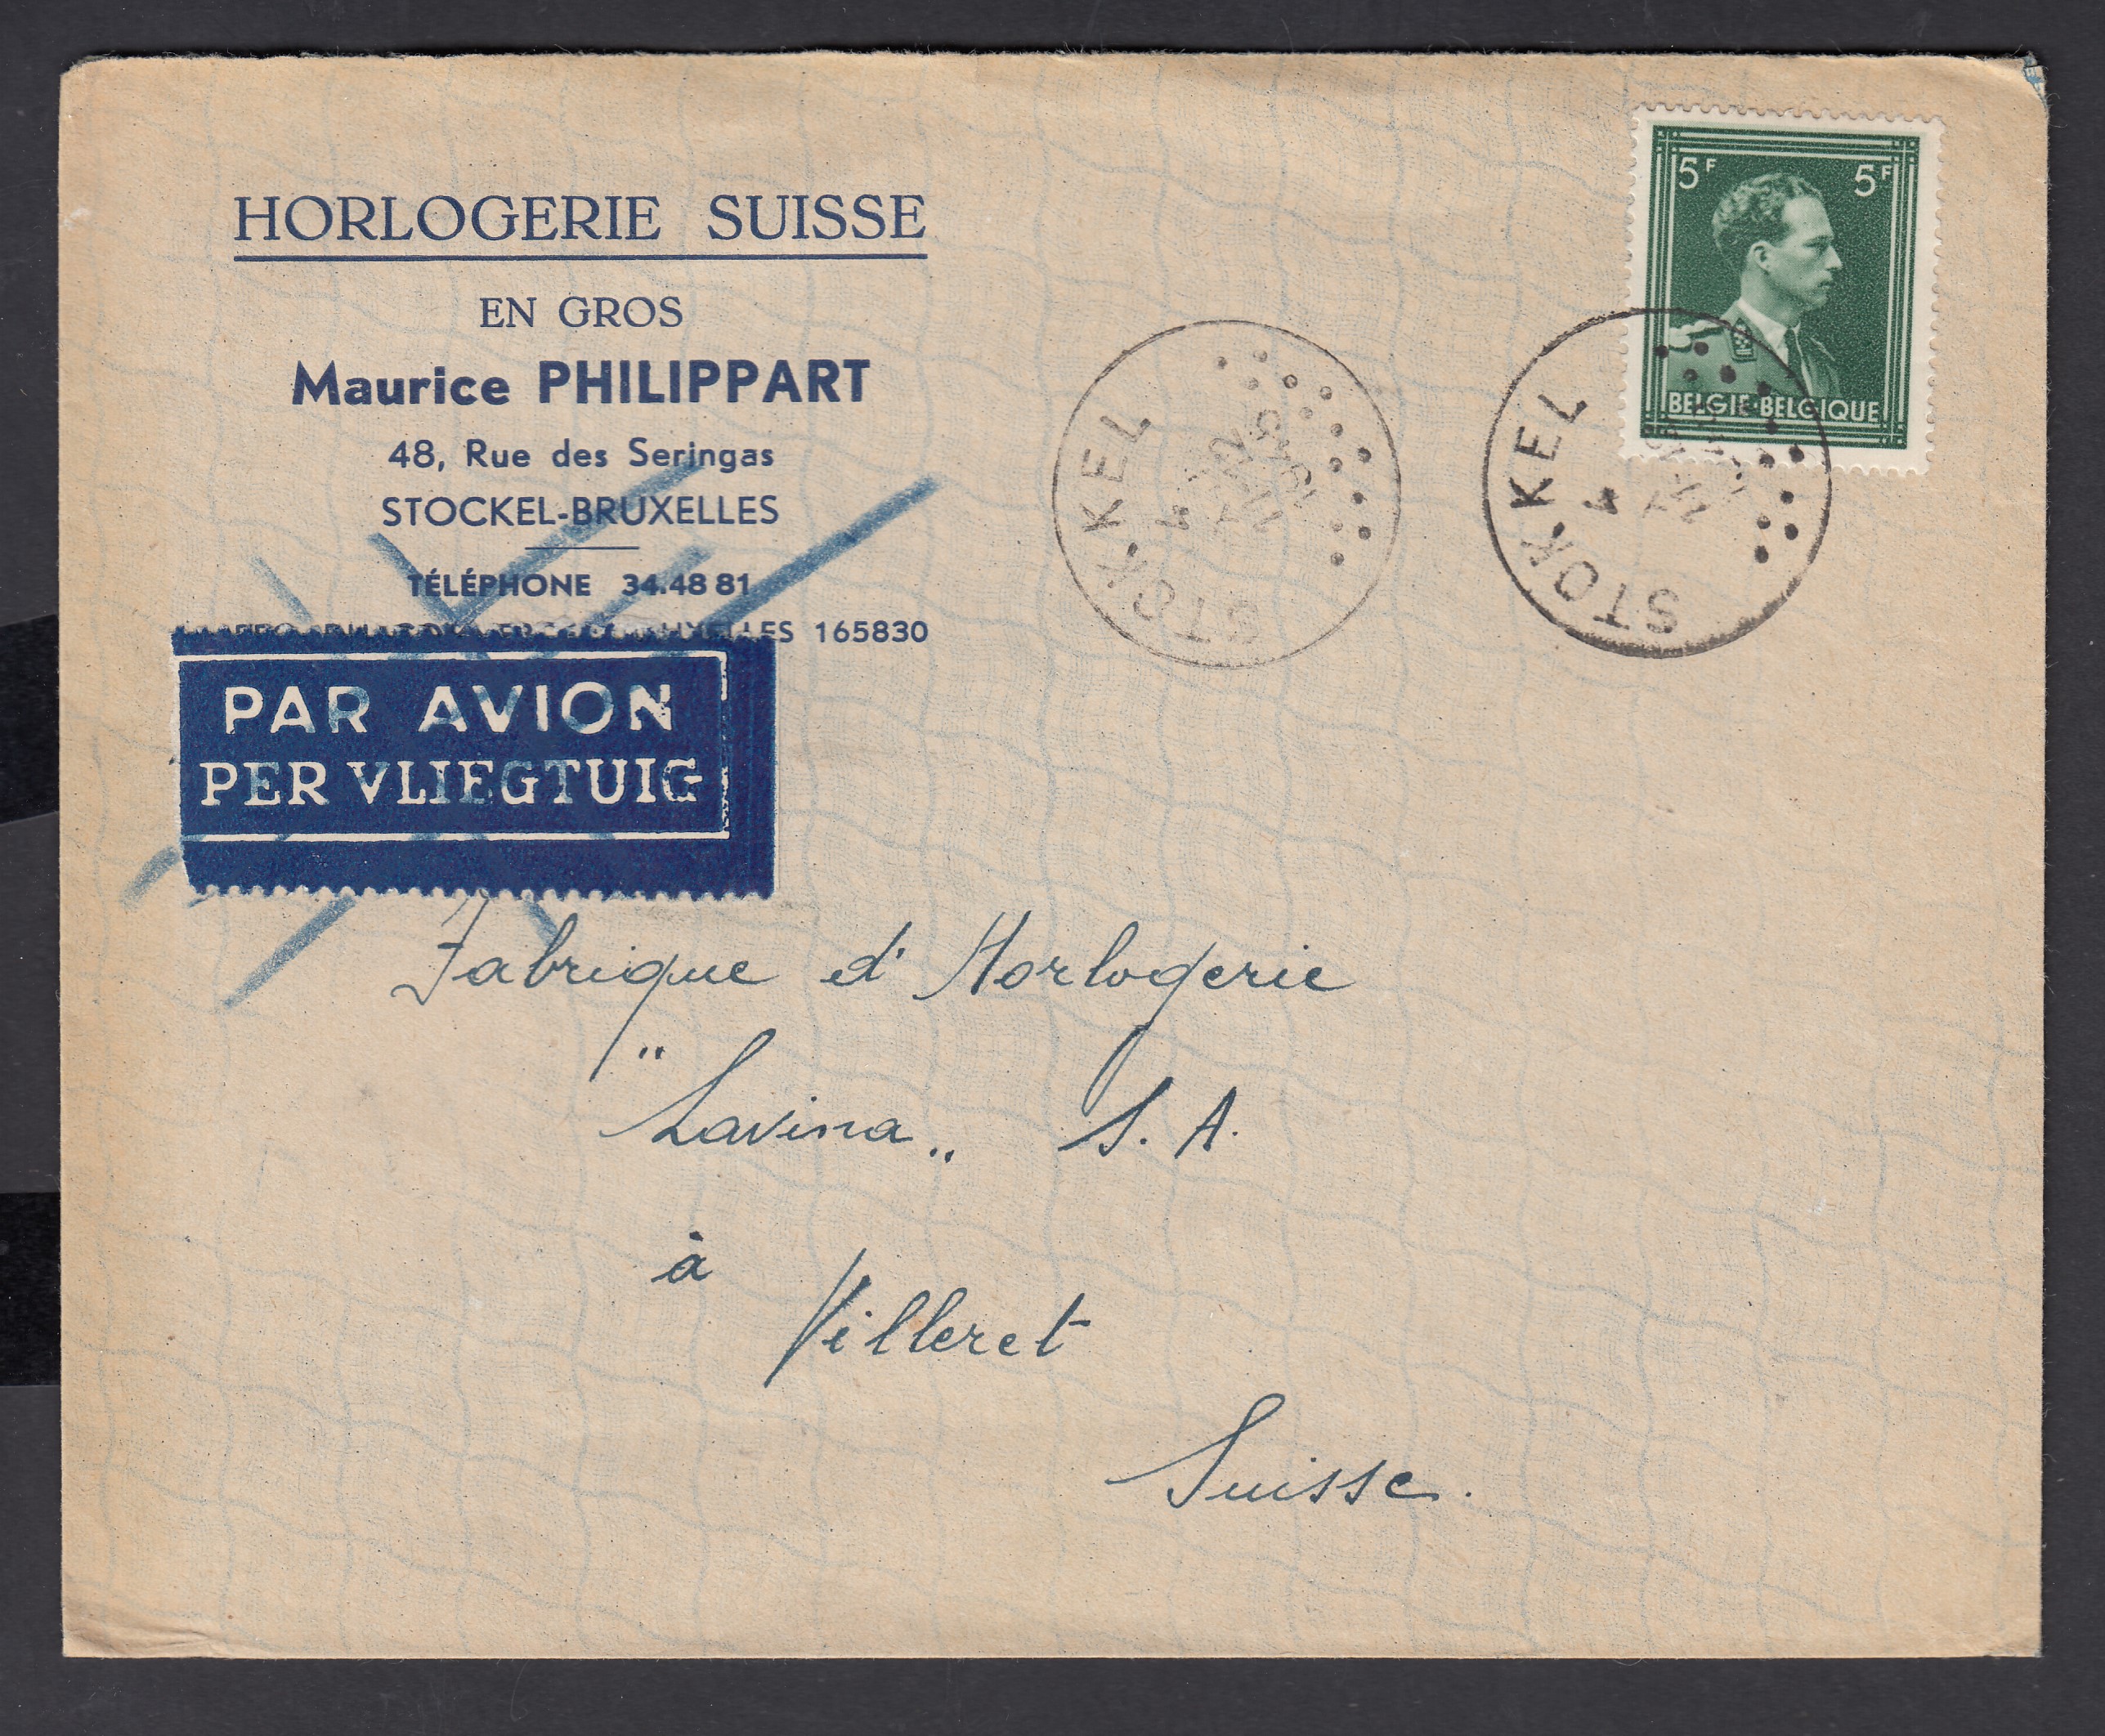 HORLOGERIE SUISSE
EN GROS
Maurice PHILIPPART
48, Rue des Seringas
STOCKEL-BRUXELLES
TÉLÉPHONE 34.48 81
165830
PAR AVION
PER VLIEGTUIG
5F 5F
BELGIE-BELGIQUE
STOKKEL
STOKKEL
Fabrique d'Horlogerie
"Lavina„ S. A.
à
Villeret
Suisse.